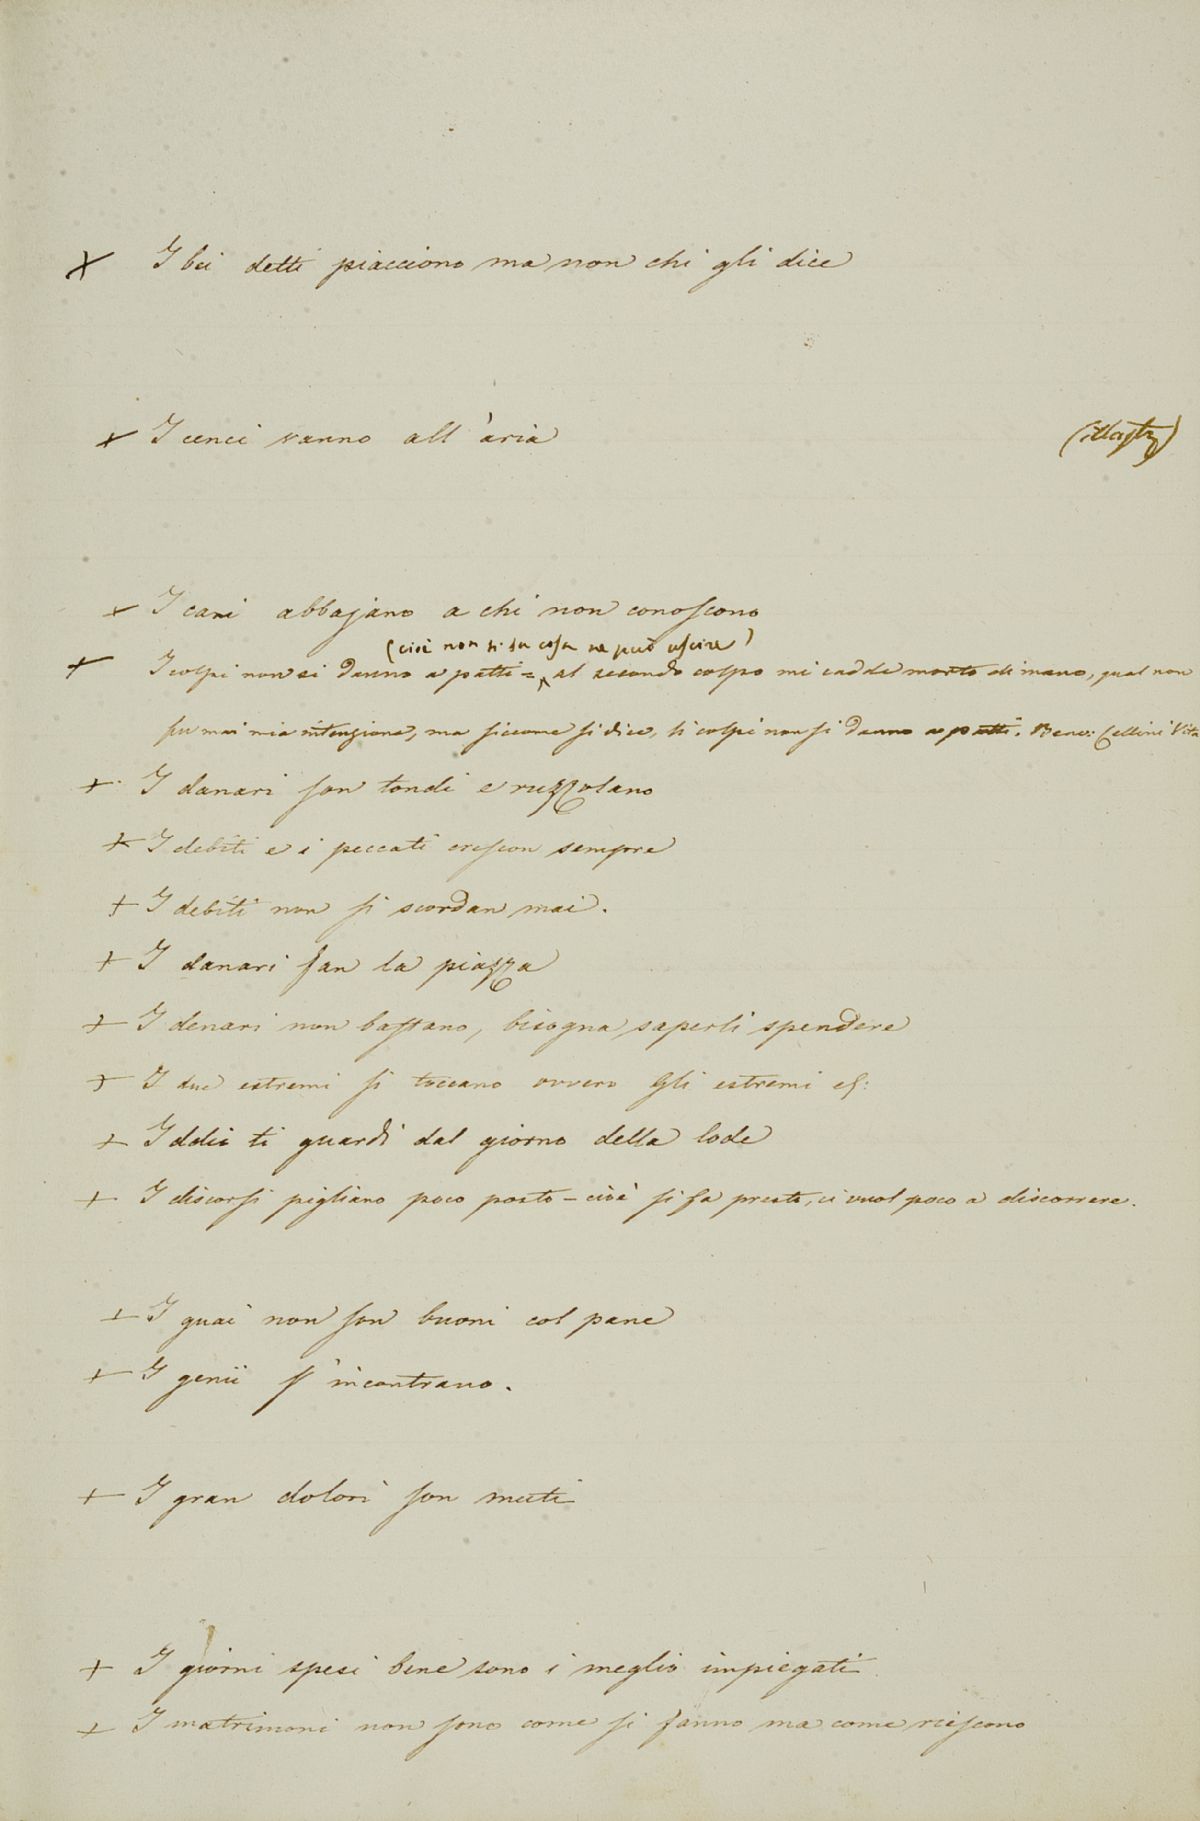 + I bei detti piacciono ma non chi gli dice
+ I cenci vanno all'aria (illustr)
+ I cani abbajano a chi non conoscono
(cioè non si sa cosa ne può uscire)
+ I colpi non si danno a patti = al secondo colpo mi cadde morto di mano, qual non
fu mai mia intenzione, ma siccome si dice, li colpi non si danno a patti. Benv: Cellini Vita
+ I danari son tondi e ruzzolano
+ I debiti e i peccati crescon sempre
+ I debiti non si scordan mai.
+ I danari fan la piazza
+ I denari non bastano, bisogna saperli spendere
+ I due estremi si toccano ovvero Gli estremi es:
+ Iddio ti guardi dal giorno della lode
+ I discorsi pigliano poco posto – cioè si fa presto, ci vuol poco a discorrere.
+ I guai non son buoni col pane
+ I genii s'incontrano.
+ I gran dolori son muti
+ I giorni spesi bene sono i meglio impiegati
+ I matrimoni non sono come si fanno ma come riescono